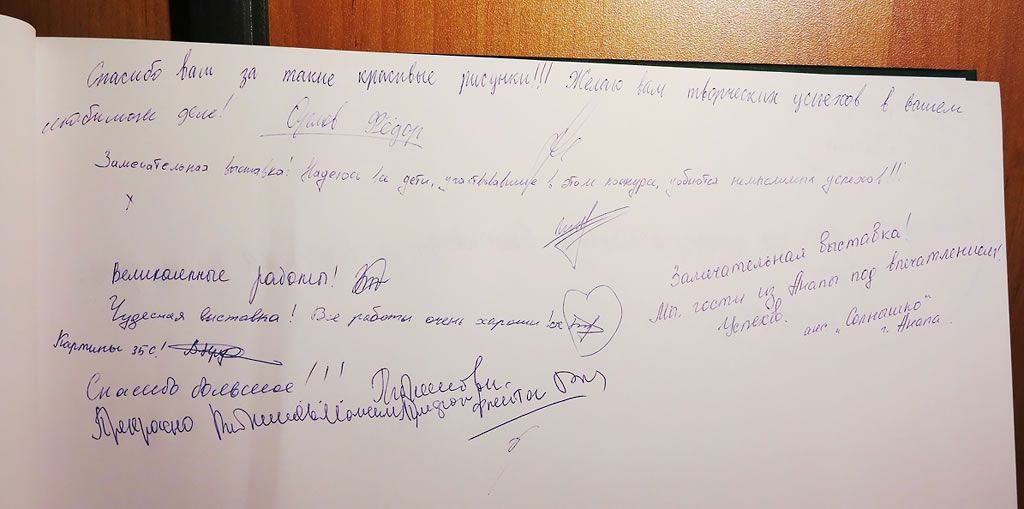 Спасибо вам за такие красивые рисунки!!! Желаю вам творческих успехов в вашем
любимом деле! Орлов Фёдор
Замечательная выставка! Надеюсь все дети, участвовавшие в этом конкурсе, добьются немыслимых успехов!!!
Великолепные работы!
Чудесная выставка! Все работы очень хороши!
Картины збс!
Спасибо большое!!!
Прекрасно
Замечательная выставка!
Мы гости из Анапы под впечатлением!
Успехов.
"Солнышко"
г. Анапа.